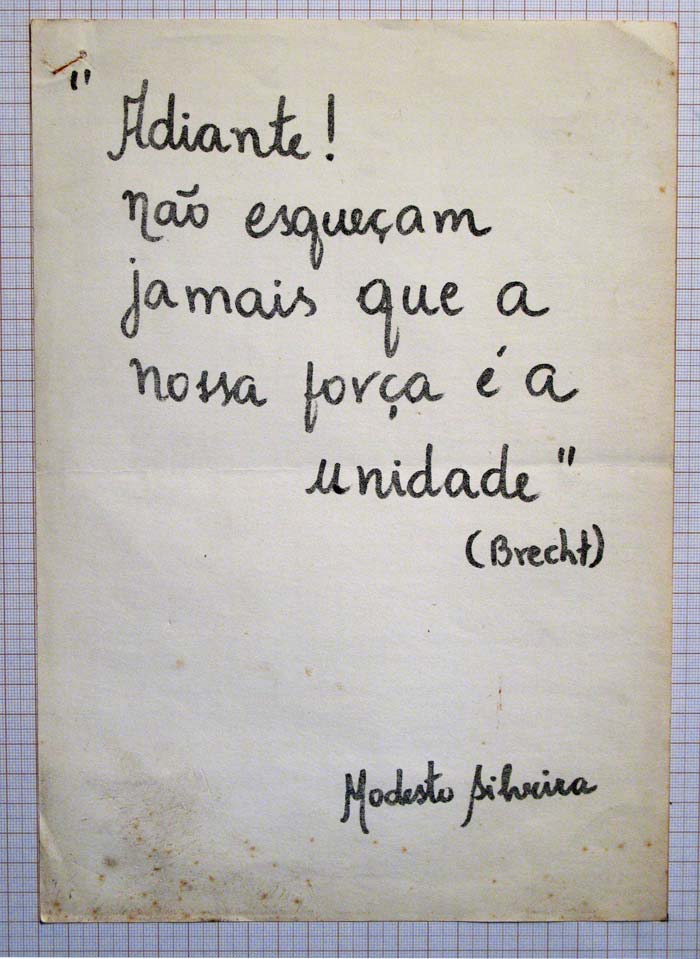 " Adiante!
não esqueçam
jamais que a
nossa força é a
unidade"
(Brecht)
Modesto Silveira